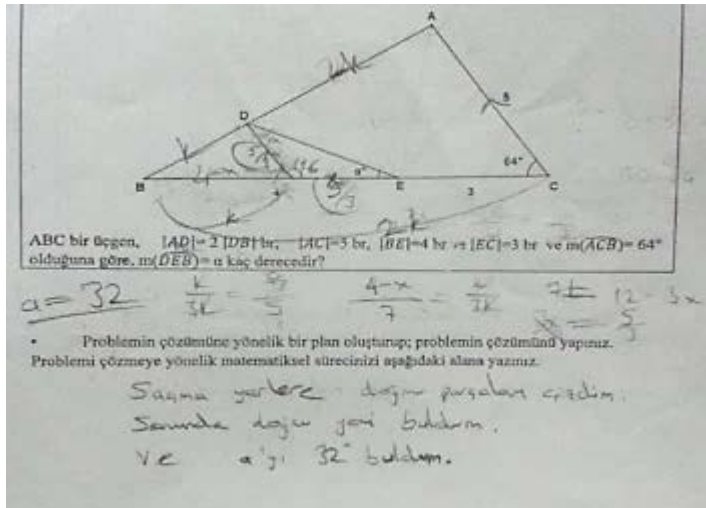 A
2k
5
D
k
5/3
4-x
116
α°
64°
B
4
5/3
E
3
C
k
2k
ABC bir üçgen, |AD|= 2 |DB| br, |AC|=5 br, |BE|=4 br ve |EC|=3 br ve m(ACB)= 64°
olduğuna göre, m(DEB)= α kaç derecedir?
a= 32
k/3k = 5/3/5
4-x/7 = k/3k
12-3x
• Problemin çözümüne yönelik bir plan oluşturup; problemin çözümünü yapınız.
Problemi çözmeye yönelik matematiksel sürecinizi aşağıdaki alana yazınız.
Saçma yerlere doğru parçaları çizdim.
Sonunda doğru yeri buldum.
ve a'yı 32° buldum.